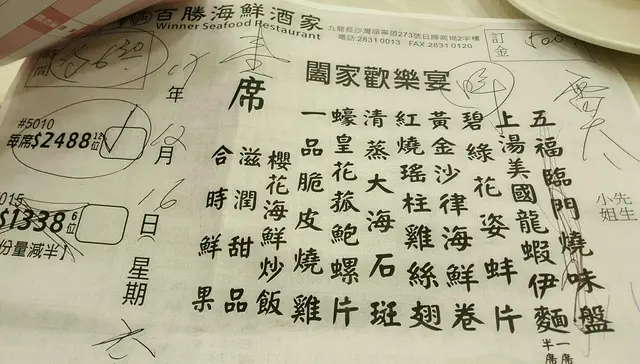 百勝海鮮酒家
Winner Seafood Restaurant
九龍長沙灣荔寧頭273號日輝商場2字樓
電話:28310013 FAX.28310120
訂金
6:30
闔家歡樂宴
五福臨門燒味盤
上湯美國龍蝦伊麵
一席
半席
碧綠花姿蚌片
黃金沙律海鮮卷
紅燒瑤柱雞絲翅
清蒸大海石斑
蠔皇花菇鮑螺片
一品脆皮燒雞
櫻花海鮮炒飯
滋潤甜品
合時鮮果
席
#5010
每席$2488 12位
015
$1338 6位
份量減半】
年
12月
16日
星期六
先生
小姐